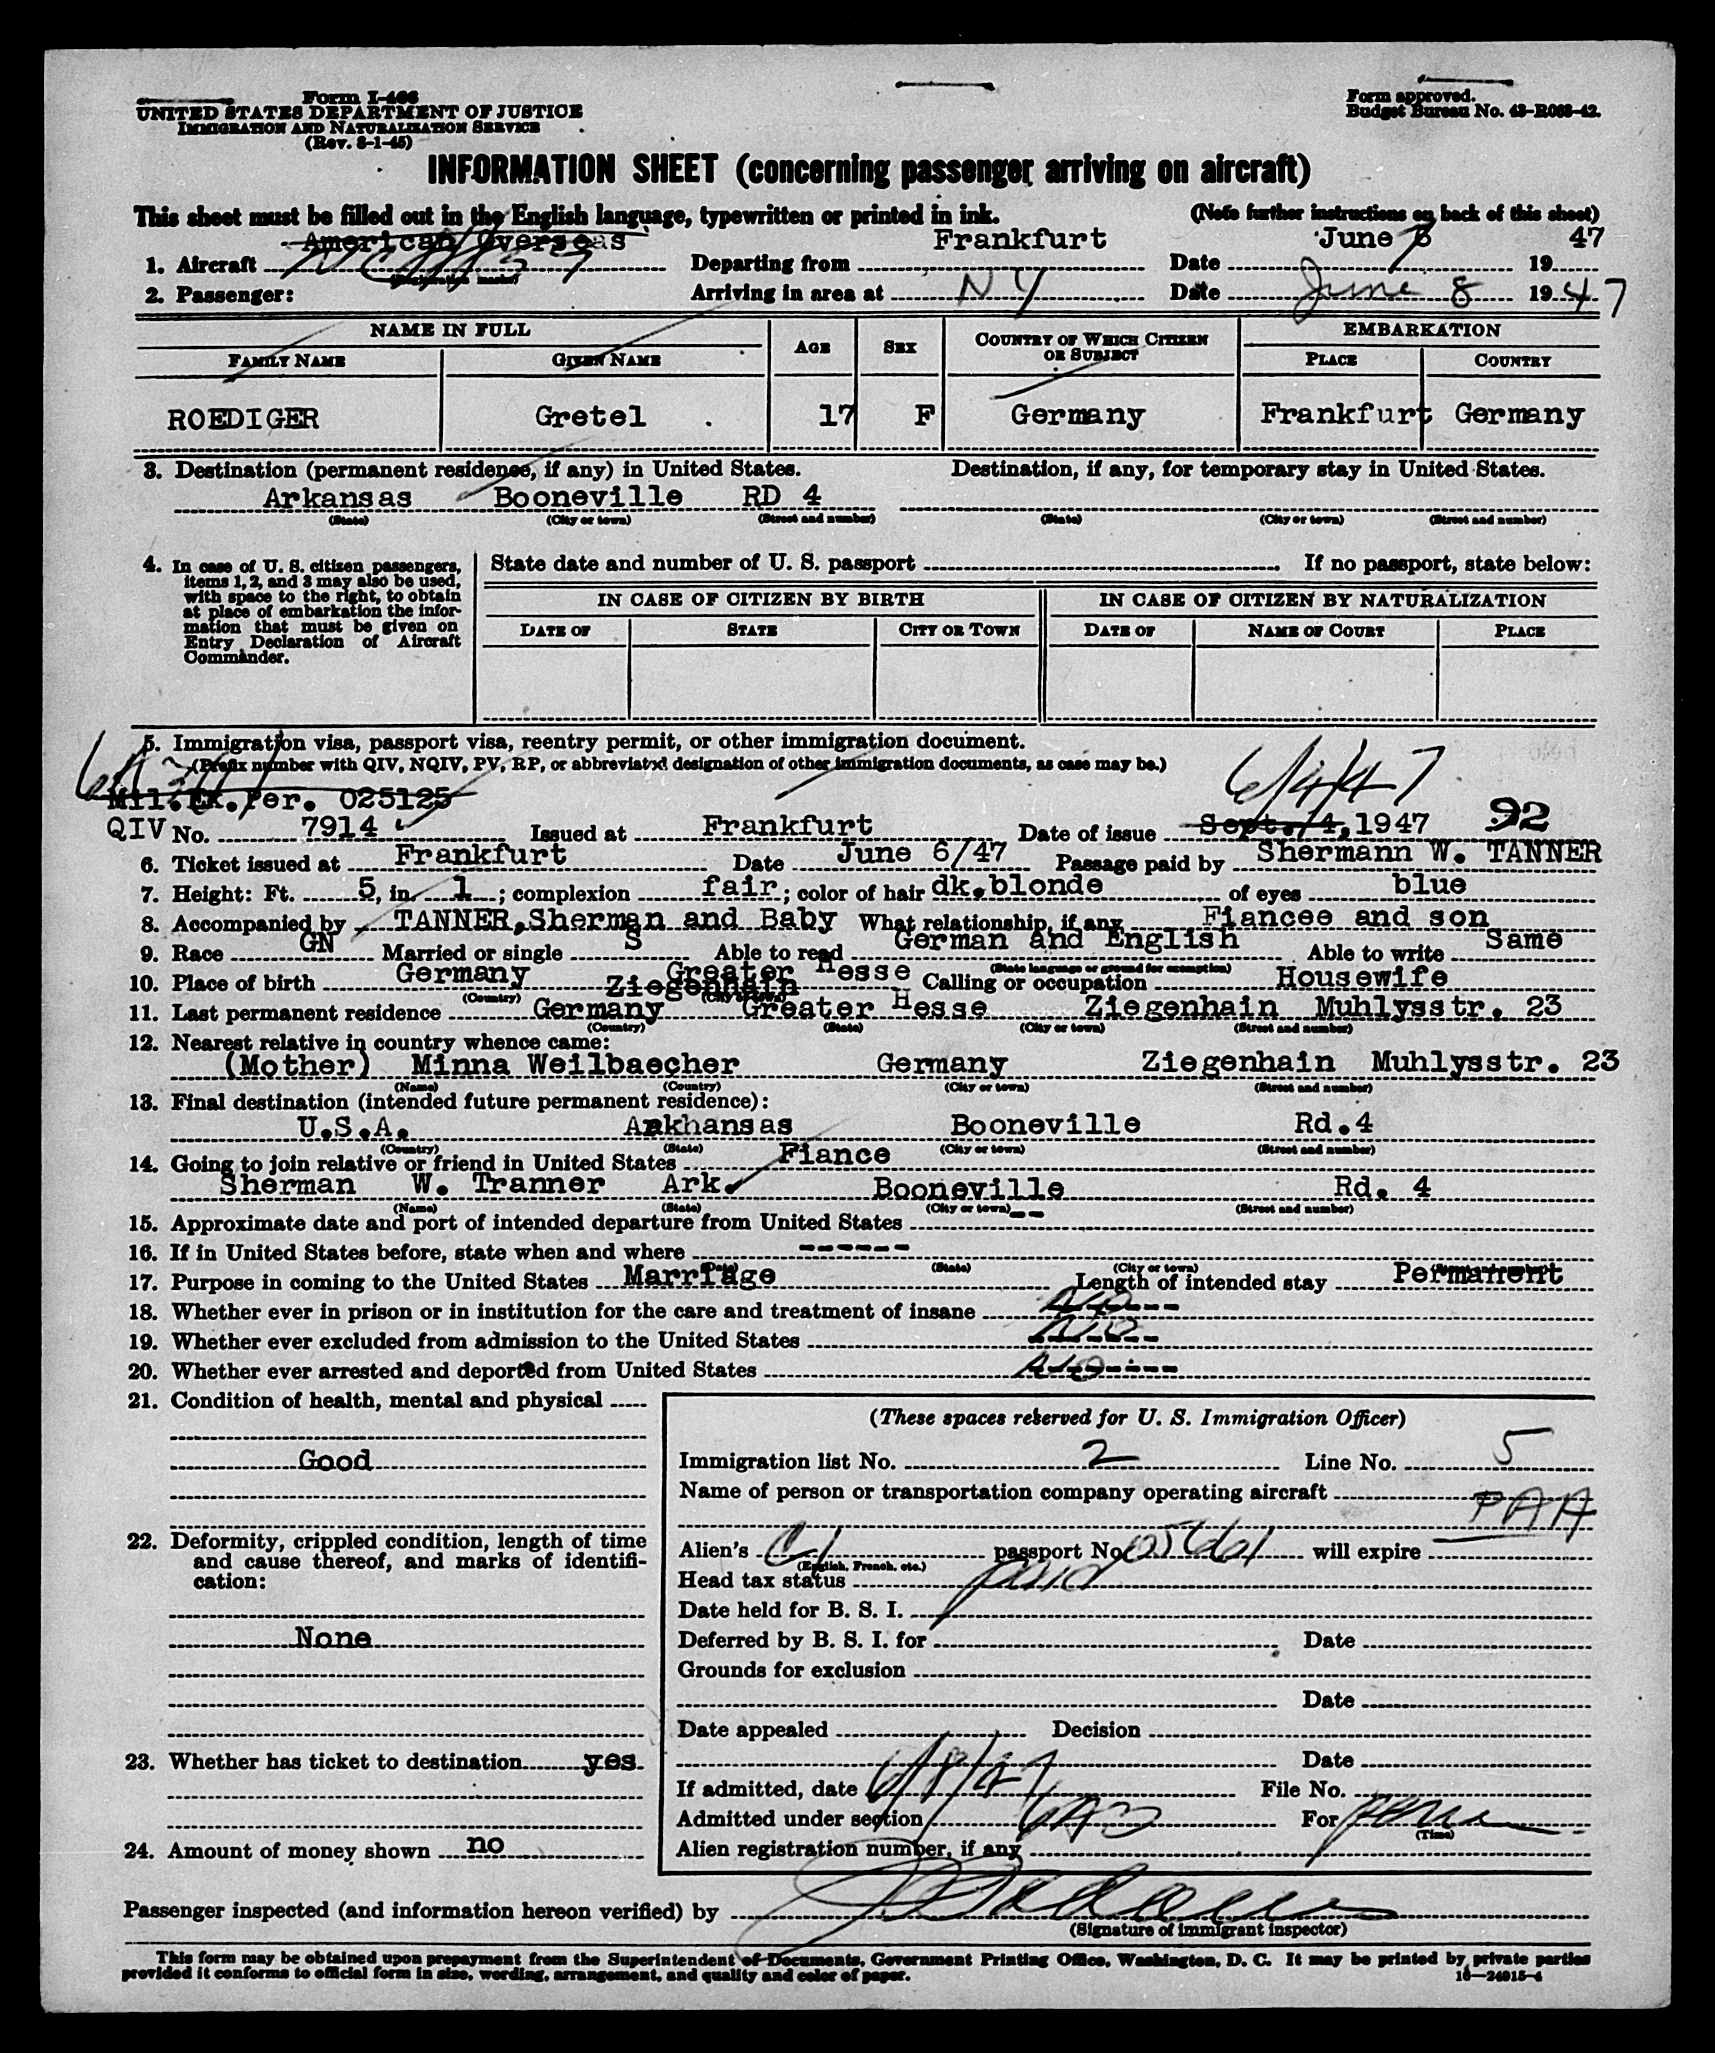 Form I-466
UNITED STATES DEPARTMENT OF JUSTICE
IMMIGRATION AND NATURALIZATION SERVICE
(Rev. 8-1-45)
Form approved.
Budget Bureau No. 43-R063-42.
INFORMATION SHEET (concerning passenger arriving on aircraft)
This sheet must be filled out in the English language, typewritten or printed in ink. (Note further instructions on back of this sheet)
1. Aircraft American Overseas Departing from Frankfurt Date June 47
2. Passenger: Arriving in area at NY Date June 8 1947
NAME IN FULL AGE SEX COUNTRY OF WHICH CITIZEN OR SUBJECT EMBARKATION
FAMILY NAME GIVEN NAME PLACE COUNTRY
ROEDIGER Gretel . 17 F Germany Frankfurt Germany
3. Destination (permanent residence, if any) in United States. Destination, if any, for temporary stay in United States.
Arkansas Booneville RD 4
(State) (City or town) (Street and number) (State) (City or town) (Street and number)
4. In case of U. S. citizen passengers, items 1, 2, and 3 may also be used, with space to the right, to obtain at place of embarkation the information that must be given on Entry Declaration of Aircraft Commander.
State date and number of U. S. passport If no passport, state below:
IN CASE OF CITIZEN BY BIRTH IN CASE OF CITIZEN BY NATURALIZATION
DATE OF STATE CITY OR TOWN DATE OF NAME OF COURT PLACE
5. Immigration visa, passport visa, reentry permit, or other immigration document.
(Prefix number with QIV, NQIV, PV, RP, or abbreviated designation of other immigration documents, as case may be.)
Mil.Ex.Per. 025125 6/4/47
QIV No. 7914 Issued at Frankfurt Date of issue Sept. 4, 1947 92
6. Ticket issued at Frankfurt Date June 6/47 Passage paid by Shermann W. TANNER
7. Height: Ft. 5, in. 1; complexion fair; color of hair dk.blonde of eyes blue
8. Accompanied by TANNER,Sherman and Baby What relationship, if any Fiancee and son
9. Race GN Married or single S Able to read German and English Able to write Same
(State language or ground for exemption)
10. Place of birth Germany Greater Hesse Ziegenhain Calling or occupation Housewife
(Country) (City or town)
11. Last permanent residence Germany Greater Hesse Ziegenhain Muhlysstr. 23
(Country) (State) (City or town) (Street and number)
12. Nearest relative in country whence came:
(Mother) Minna Weilbaecher Germany Ziegenhain Muhlysstr. 23
(Name) (Country) (City or town) (Street and number)
13. Final destination (intended future permanent residence):
U.S.A. Arkhansas Booneville Rd.4
(Country) (State) (City or town) (Street and number)
14. Going to join relative or friend in United States Fiance
Sherman W. Tranner Ark. Booneville Rd. 4
(Name) (State) (City or town) (Street and number)
15. Approximate date and port of intended departure from United States --
16. If in United States before, state when and where ------
(Date) (State) (City or town) (Street and number)
17. Purpose in coming to the United States Marriage Length of intended stay Permanent
18. Whether ever in prison or in institution for the care and treatment of insane No
19. Whether ever excluded from admission to the United States No
20. Whether ever arrested and deported from United States No
21. Condition of health, mental and physical
Good
22. Deformity, crippled condition, length of time and cause thereof, and marks of identification:
None
23. Whether has ticket to destination yes
24. Amount of money shown no
(These spaces reserved for U. S. Immigration Officer)
Immigration list No. 2 Line No. 5
Name of person or transportation company operating aircraft
PAA
Alien's passport No. will expire
(English, French, etc.)
Head tax status paid
Date held for B. S. I.
Deferred by B. S. I. for Date
Grounds for exclusion
Date
Date appealed Decision
Date
If admitted, date 6/8/47 File No.
Admitted under section 6A3 For perm
(Time)
Alien registration number, if any
Passenger inspected (and information hereon verified) by
(Signature of immigrant inspector)
This form may be obtained upon prepayment from the Superintendent of Documents, Government Printing Office, Washington, D. C. It may be printed by private parties
provided it conforms to official form in size, wording, arrangement, and quality and color of paper. 16—24915-4